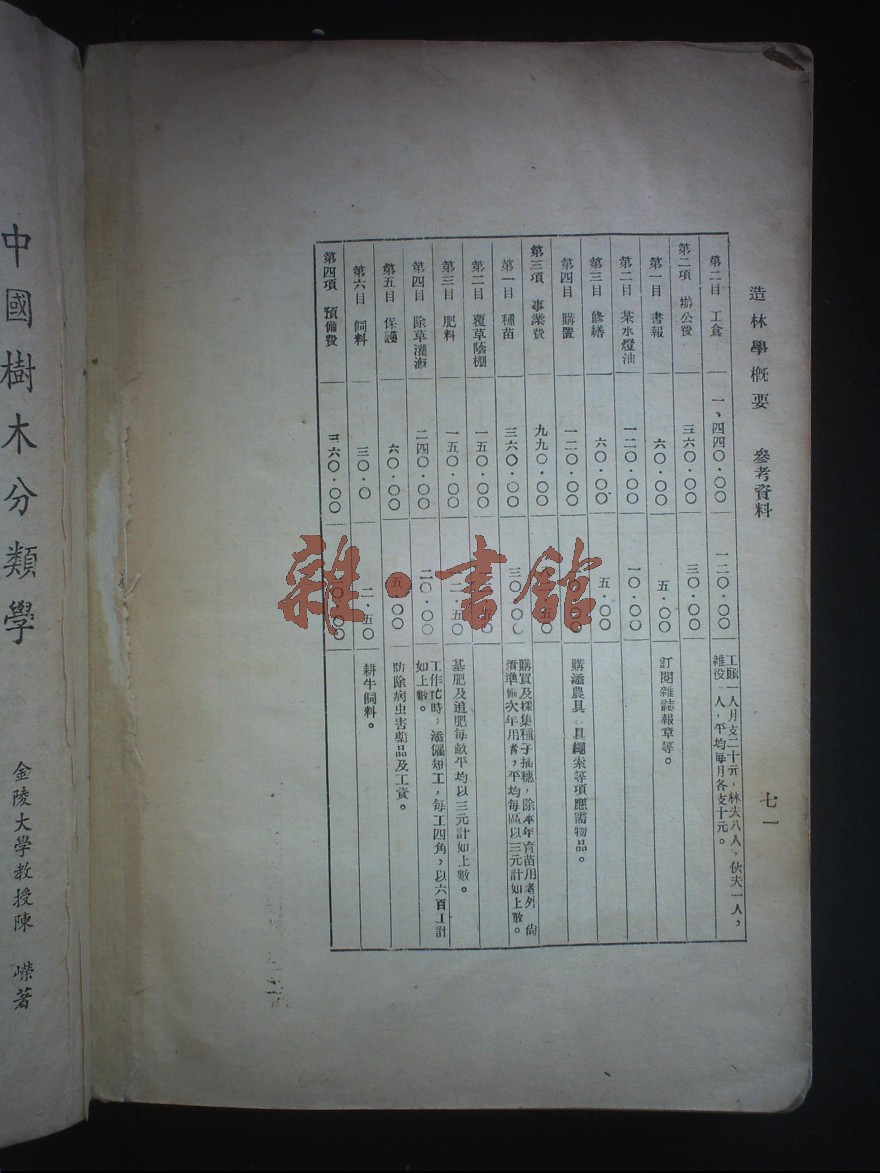 造林學概要 參考資料 七一
第二目 工食 一、四四〇·〇〇 一二〇·〇〇 工頭一人月支二十元，林夫八人，伙夫一人，
雜役 人，平均每月各支十元。
第二項 辦公費 三六〇·〇〇 三〇·〇〇
第一目 書報 六〇·〇〇 五·〇〇 訂閱雜誌報章等。
第二目 茶水燈油 一二〇·〇〇 一〇·〇〇
第三目 修繕 六〇·〇〇 五·〇〇
第四目 購置 一二〇·〇〇 購添農具 具繩索等項應需物品。
第三項 事業費 九九〇·〇〇
第一目 種苗 三六〇·〇〇 三〇·〇〇 購買及採集種子插穗，除本年育苗用者外 尚
須準備次年用者，平均每區以三元計如上數。
第二目 覆草蔭棚 一五〇·〇〇
第三目 肥料 一五〇·〇〇 一二·五〇 基肥及追肥每畝平均以三元計如上數。
第四目 除草灌溉 二四〇·〇〇 二〇·〇〇 工作忙時，添僱短工，每工四角，以六百工計
如上數。
第五目 保護 六〇·〇〇 五·〇〇 防除病虫害藥品及工資。
第六目 飼料 三〇·〇 二·五〇 耕牛飼料。
第四項 預備費 三六〇·〇〇 〇·〇〇
雜·書館
中國樹木分類學
金陵大學教授陳嶸著